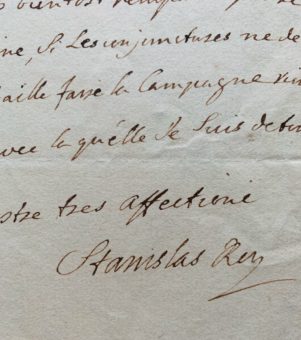 bientost
ine, Si Les conjunctures ne de
aille fasse La Campagne
avec La quelle Je Suis de
stre tres affectioné
Stanislas Roy